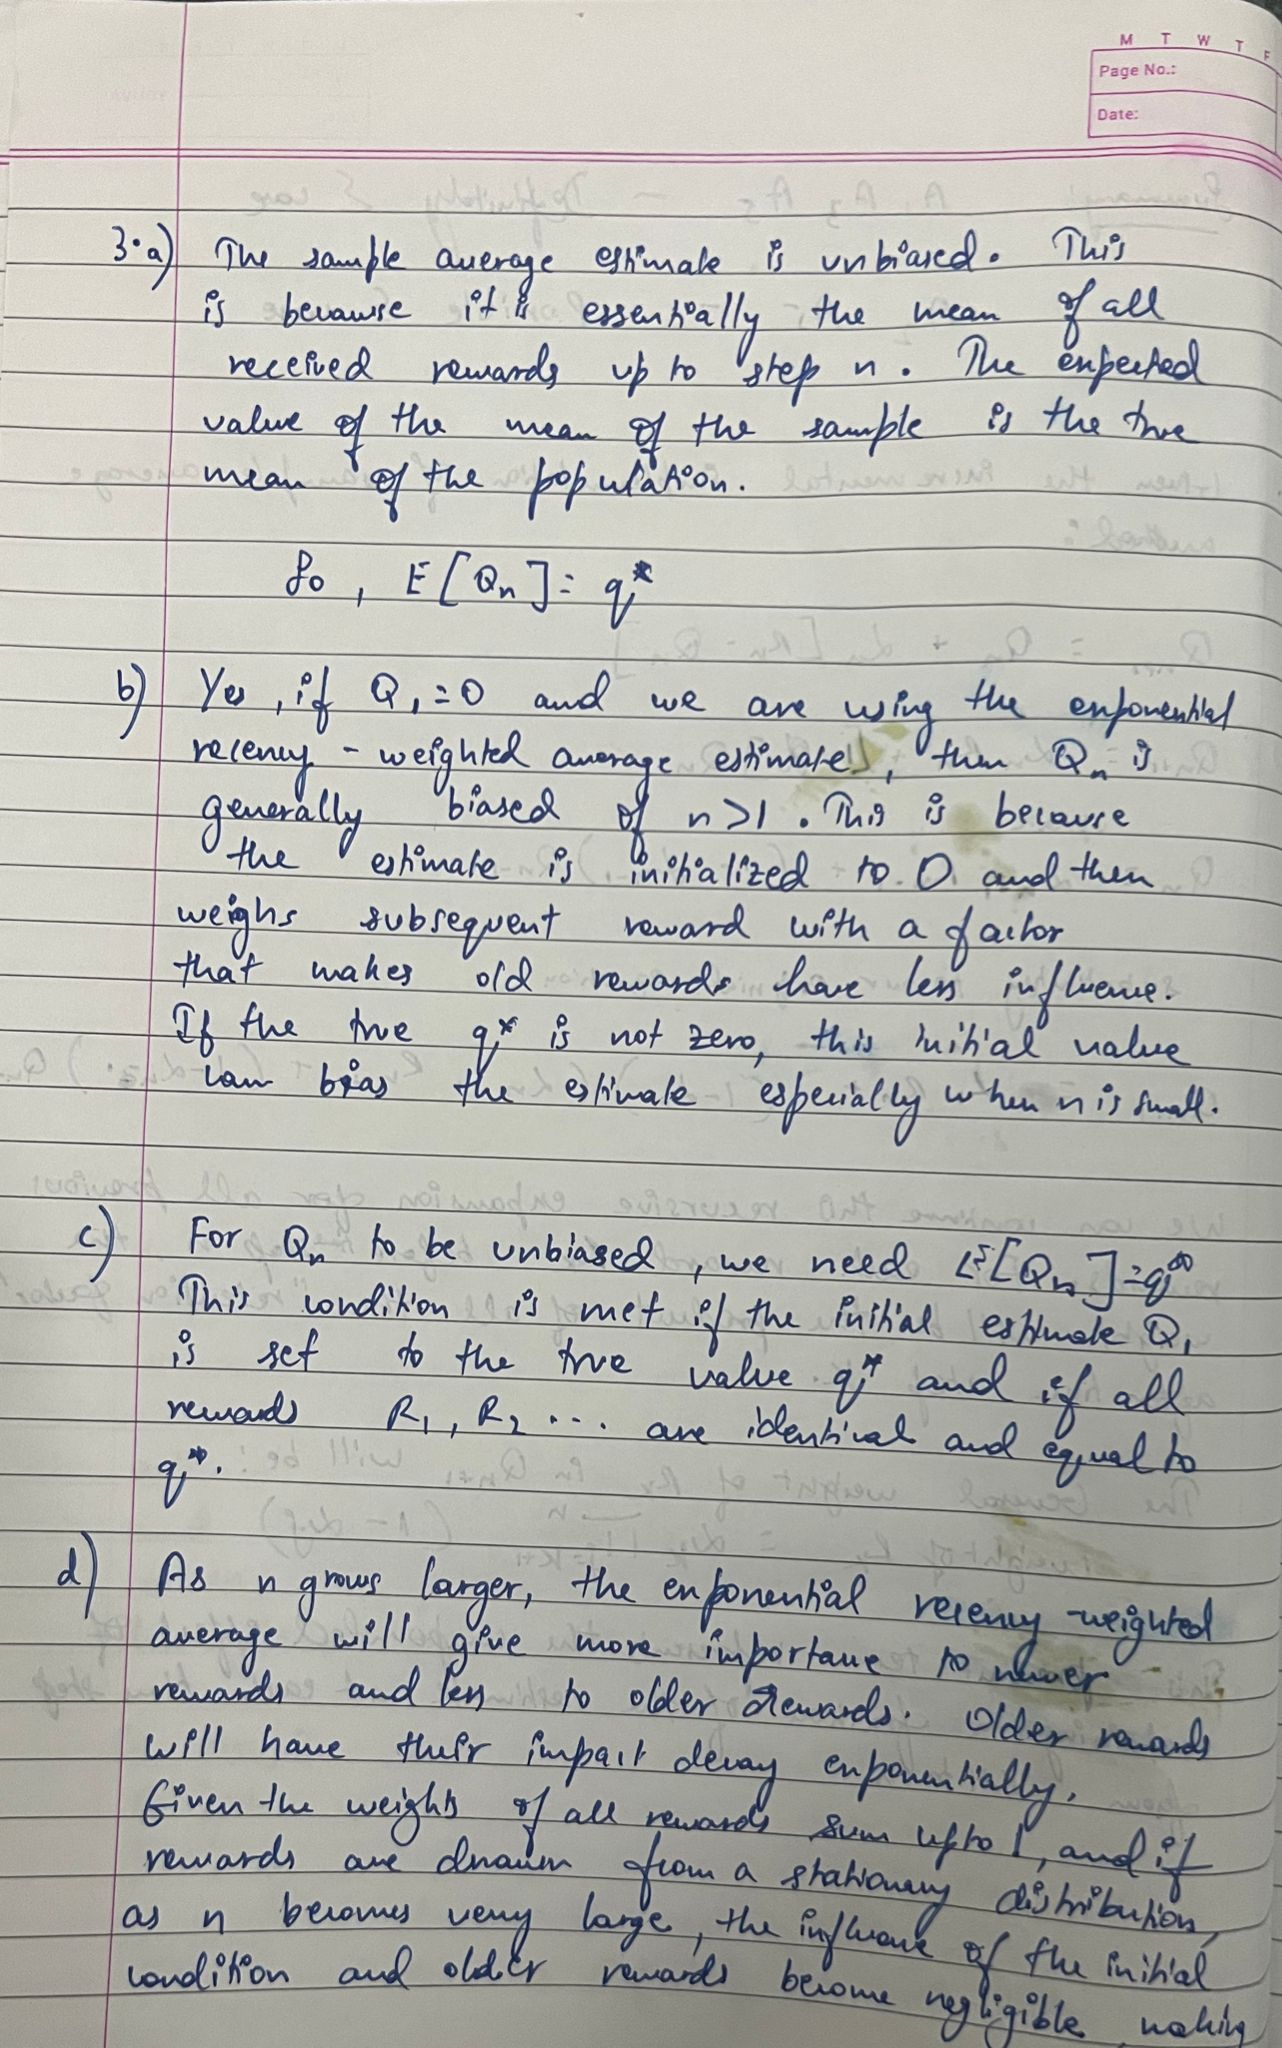 M T W T F
Page No.:
Date:
3.a) The sample average estimate is unbiased. This
is because it is essentially the mean of all
received rewards up to step n. The expected
value of the mean of the sample is the true
mean of the population.
So, E[Qn] = q*
b) Yes, if Q1 = 0 and we are using the exponential
recency - weighted average estimate, then Qn is
generally biased of n>1. This is because
the estimate is initialized to 0 and then
weighs subsequent reward with a factor
that makes old rewards have less influence.
If the true q* is not zero, this initial value
can bias the estimate especially when n is small.
c) For Qn to be unbiased, we need E[Qn] = q*
This condition is met if the initial estimate Q1
is set to the true value q* and if all
rewards R1, R2 ... are identical and equal to
q*.
d) As n grows larger, the exponential recency-weighted
average will give more importance to newer
rewards and less to older rewards. Older rewards
will have their impact decay exponentially.
Given the weights of all rewards sum upto 1, and if
rewards are drawn from a stationary distribution,
as n becomes very large, the influence of the initial
condition and older rewards become negligible making